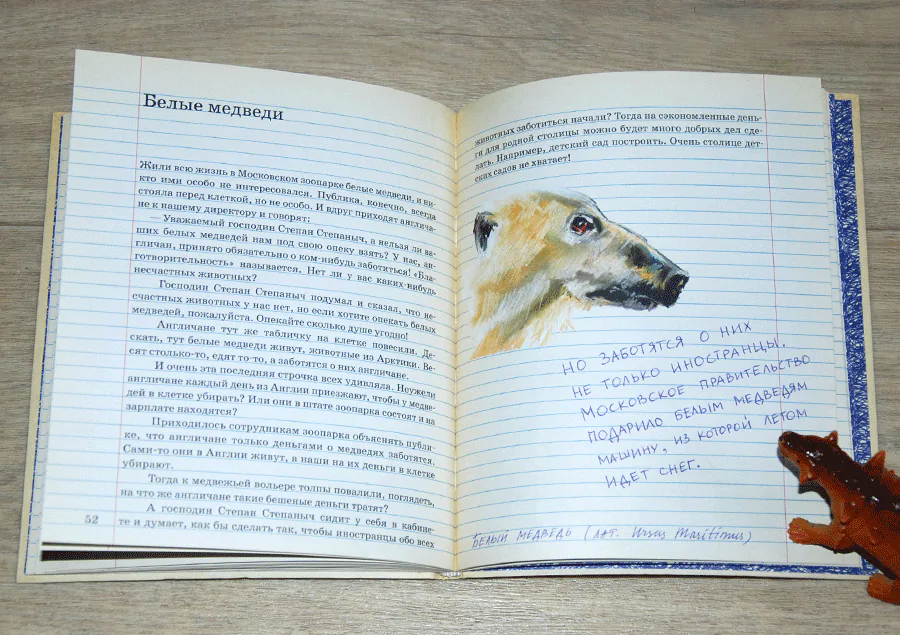 Белые медведи
Жили всю жизнь в Московском зоопарке белые медведи, и ни-
кто ими особо не интересовался. Публика, конечно, всегда
стояла перед клеткой, но не особо. И вдруг приходят англича-
не к нашему директору и говорят:
— Уважаемый господин Степан Степаныч, а нельзя ли ва-
ших белых медведей нам под свою опеку взять? У нас, ан-
гличан, принято обязательно о ком-нибудь заботиться! «Бла-
готворительность» называется. Нет ли у вас каких-нибудь
несчастных животных?
Господин Степан Степаныч подумал и сказал, что не-
счастных животных у нас нет, но если хотите опекать белых
медведей, пожалуйста. Опекайте сколько душе угодно!
Англичане тут же табличку на клетке повесили. Де-
скать, тут белые медведи живут, животные из Арктики. Ве-
сят столько-то, едят то-то, а заботятся о них англичане.
И очень эта последняя строчка всех удивляла. Неужели
англичане каждый день из Англии приезжают, чтобы у медве-
дей в клетке убирать? Или они в штате зоопарка состоят и на
зарплате находятся?
Приходилось сотрудникам зоопарка объяснять публи-
ке, что англичане только деньгами о медведях заботятся.
Сами-то они в Англии живут, а наши на их деньги в клетке
убирают.
Тогда к медвежьей вольере толпы повалили, поглядеть,
на что же англичане такие бешеные деньги тратят?
А господин Степан Степаныч сидит у себя в кабине-
те и думает, как бы сделать так, чтобы иностранцы обо всех
52
животных заботиться начали? Тогда на сэкономленные день-
ги для родной столицы можно будет много добрых дел сде-
лать. Например, детский сад построить. Очень столице дет-
ских садов не хватает!
НО ЗАБОТЯТСЯ О НИХ
НЕ ТОЛЬКО ИНОСТРАНЦЫ.
МОСКОВСКОЕ ПРАВИТЕЛЬСТВО
ПОДАРИЛО БЕЛЫМ МЕДВЕДЯМ
МАШИНУ, ИЗ КОТОРОЙ ЛЕТОМ
ИДЕТ СНЕГ.
БЕЛЫЙ МЕДВЕДЬ (ЛАТ. Ursus Maritimus)